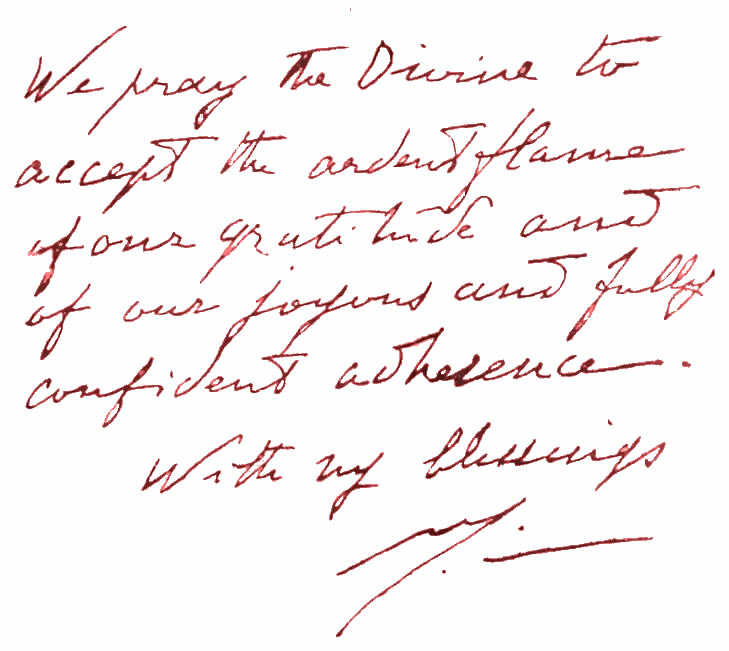 We pray the Divine to
accept the ardent flame
of our gratitude and
of our joyous and fully
confident adherence.
With my blessings